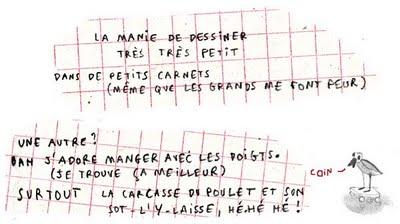 LA MANIE DE DESSINER
TRÈS TRÈS PETIT
DANS DE PETITS CARNETS
(MÊME QUE LES GRANDS ME FONT PEUR)
UNE AUTRE?
J'ADORE MANGER AVEC LES DOIGTS.
(JE TROUVE ÇA MEILLEUR)
COIN
SURTOUT LA CARCASSE DU POULET ET SON
SOT-L'Y-LAISSE, HÉ.HÉ HÉ!